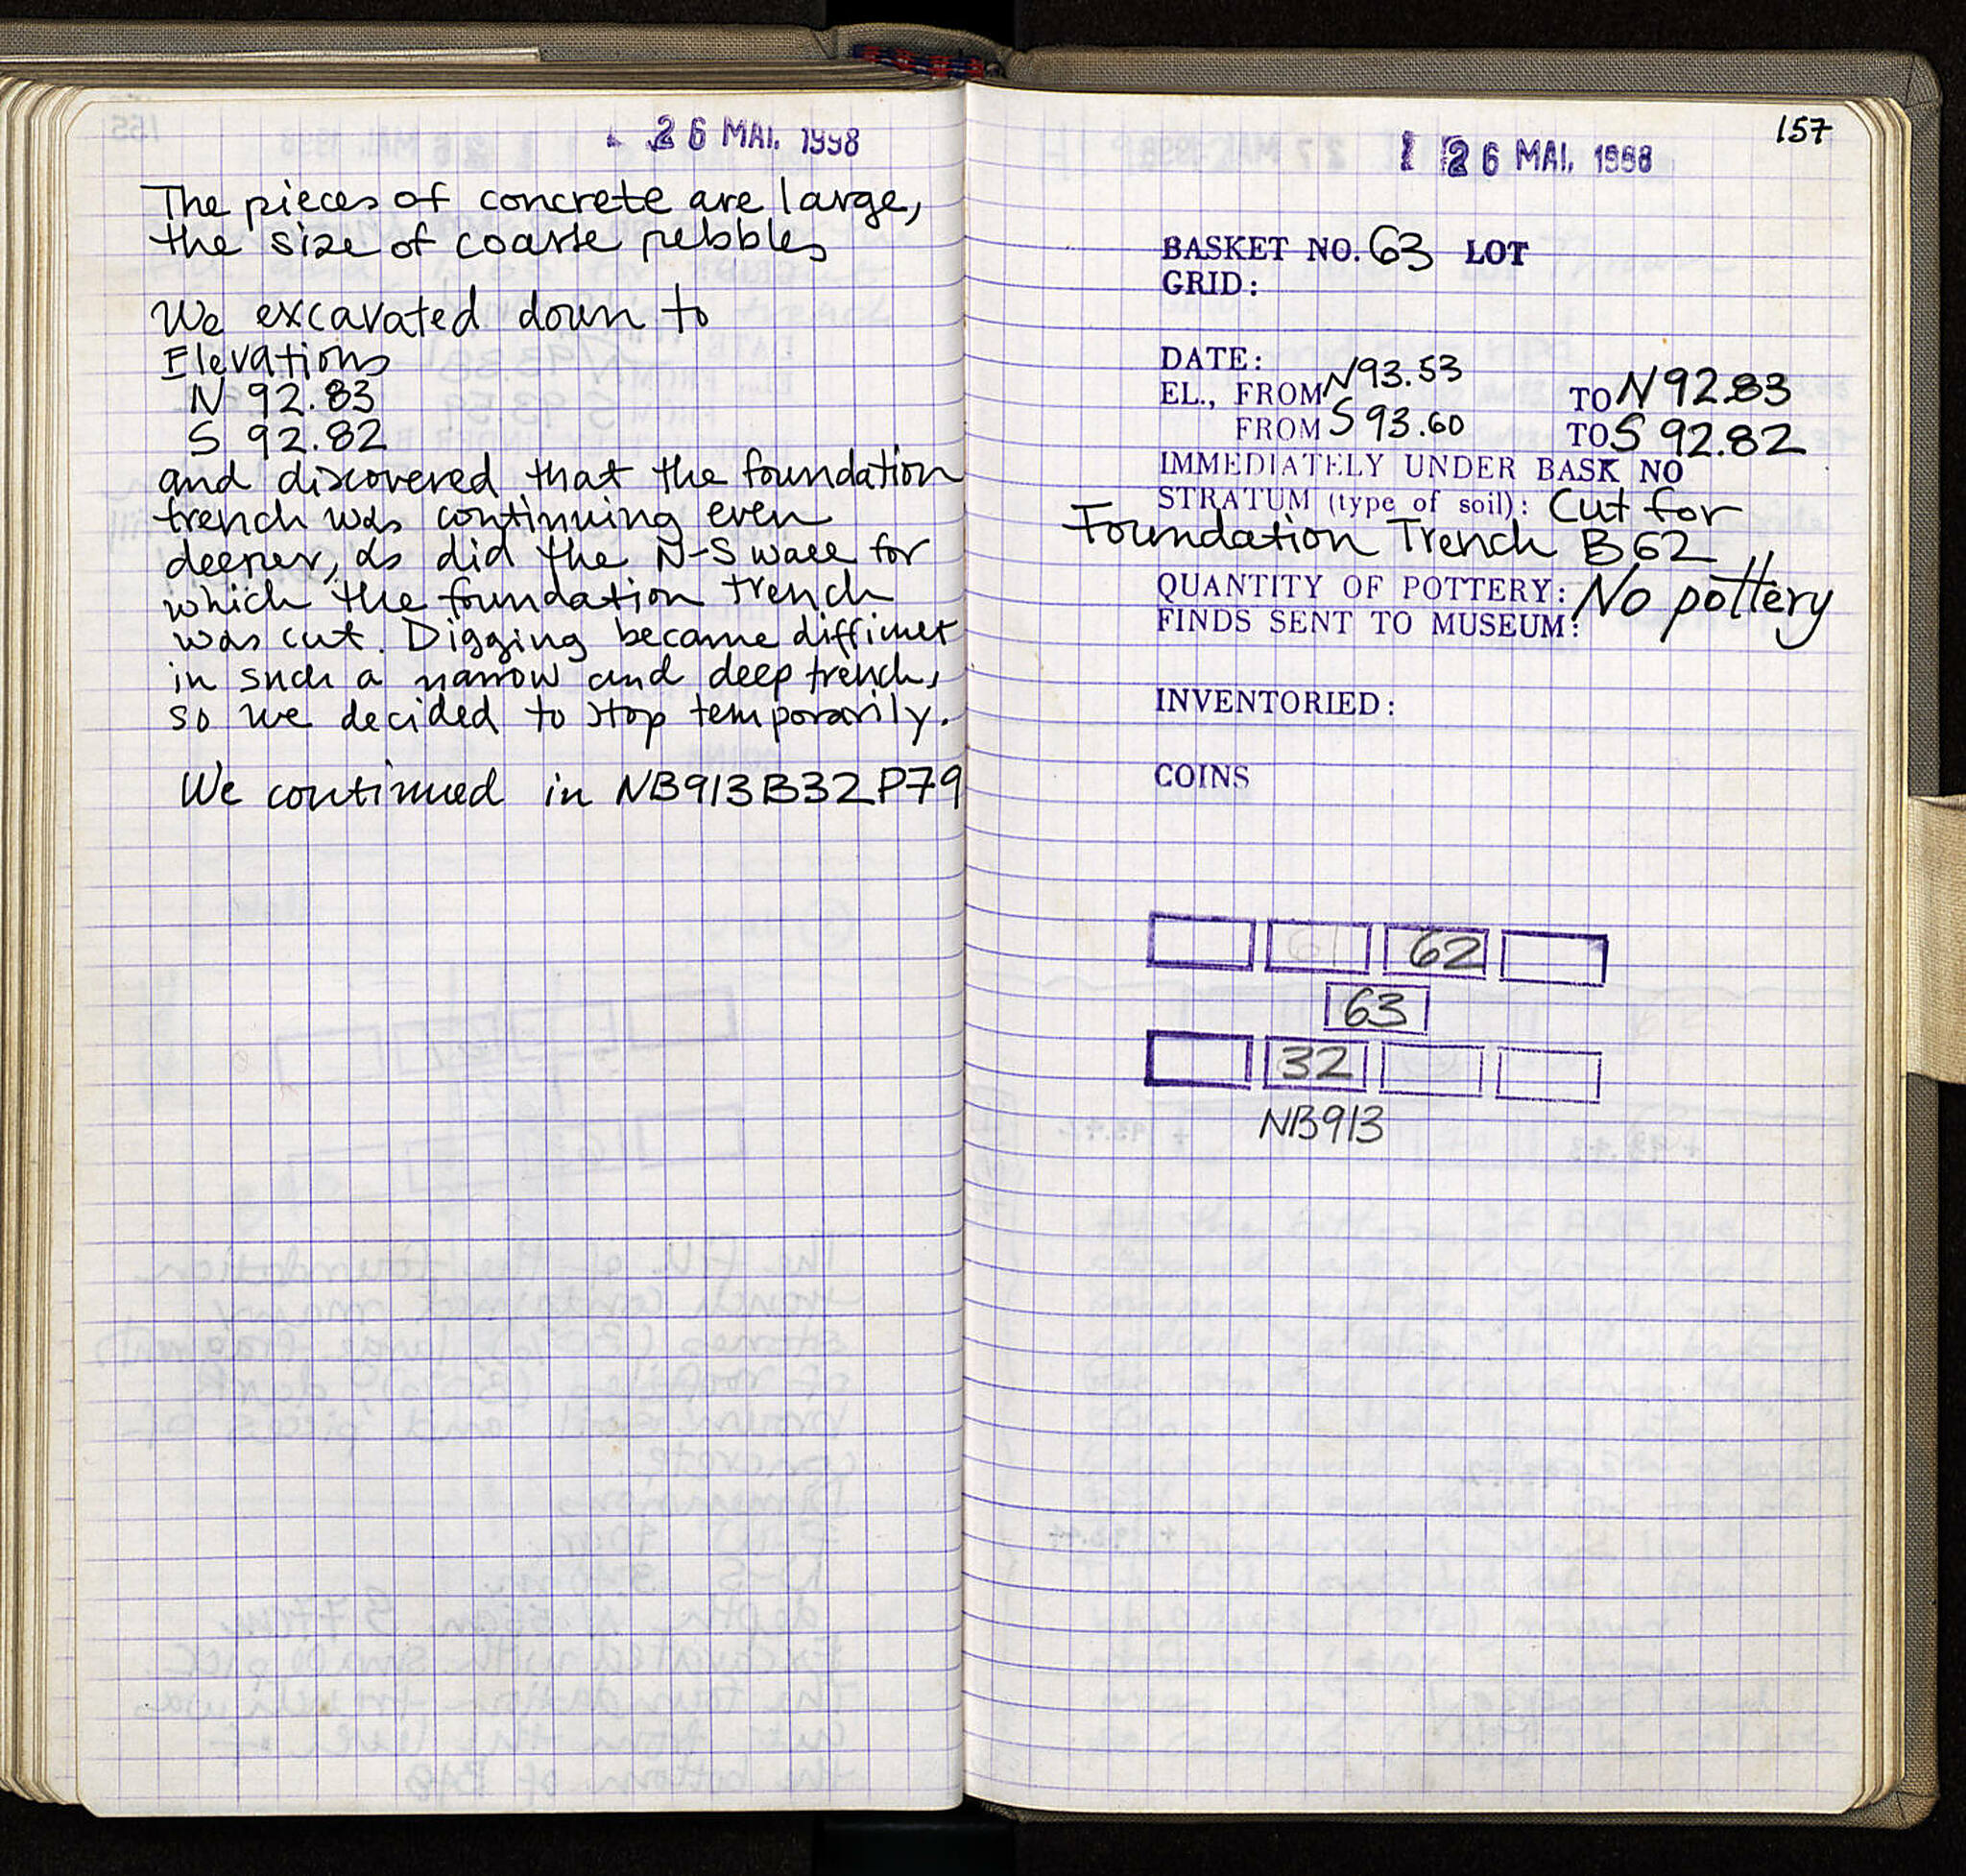 26 MAI. 1998
The pieces of concrete are large,
the size of coarse pebbles
We excavated down to
Elevations
N 92.83
S 92.82
and discovered that the foundation
trench was continuing even
deeper, as did the N-S wall for
which the foundation trench
was cut. Digging became difficult
in such a narrow and deep trench,
so we decided to stop temporarily.
We continued in NB913 B32 P79
157
26 MAI. 1998
BASKET NO. 63 LOT
GRID:
DATE:
EL., FROM N93.53 TO N 92.83
FROM S 93.60 TO S 92.82
IMMEDIATELY UNDER BASK NO
STRATUM (type of soil): Cut for
Foundation Trench B62
QUANTITY OF POTTERY: No pottery
FINDS SENT TO MUSEUM:
INVENTORIED:
COINS
61 62
63
32
NB913